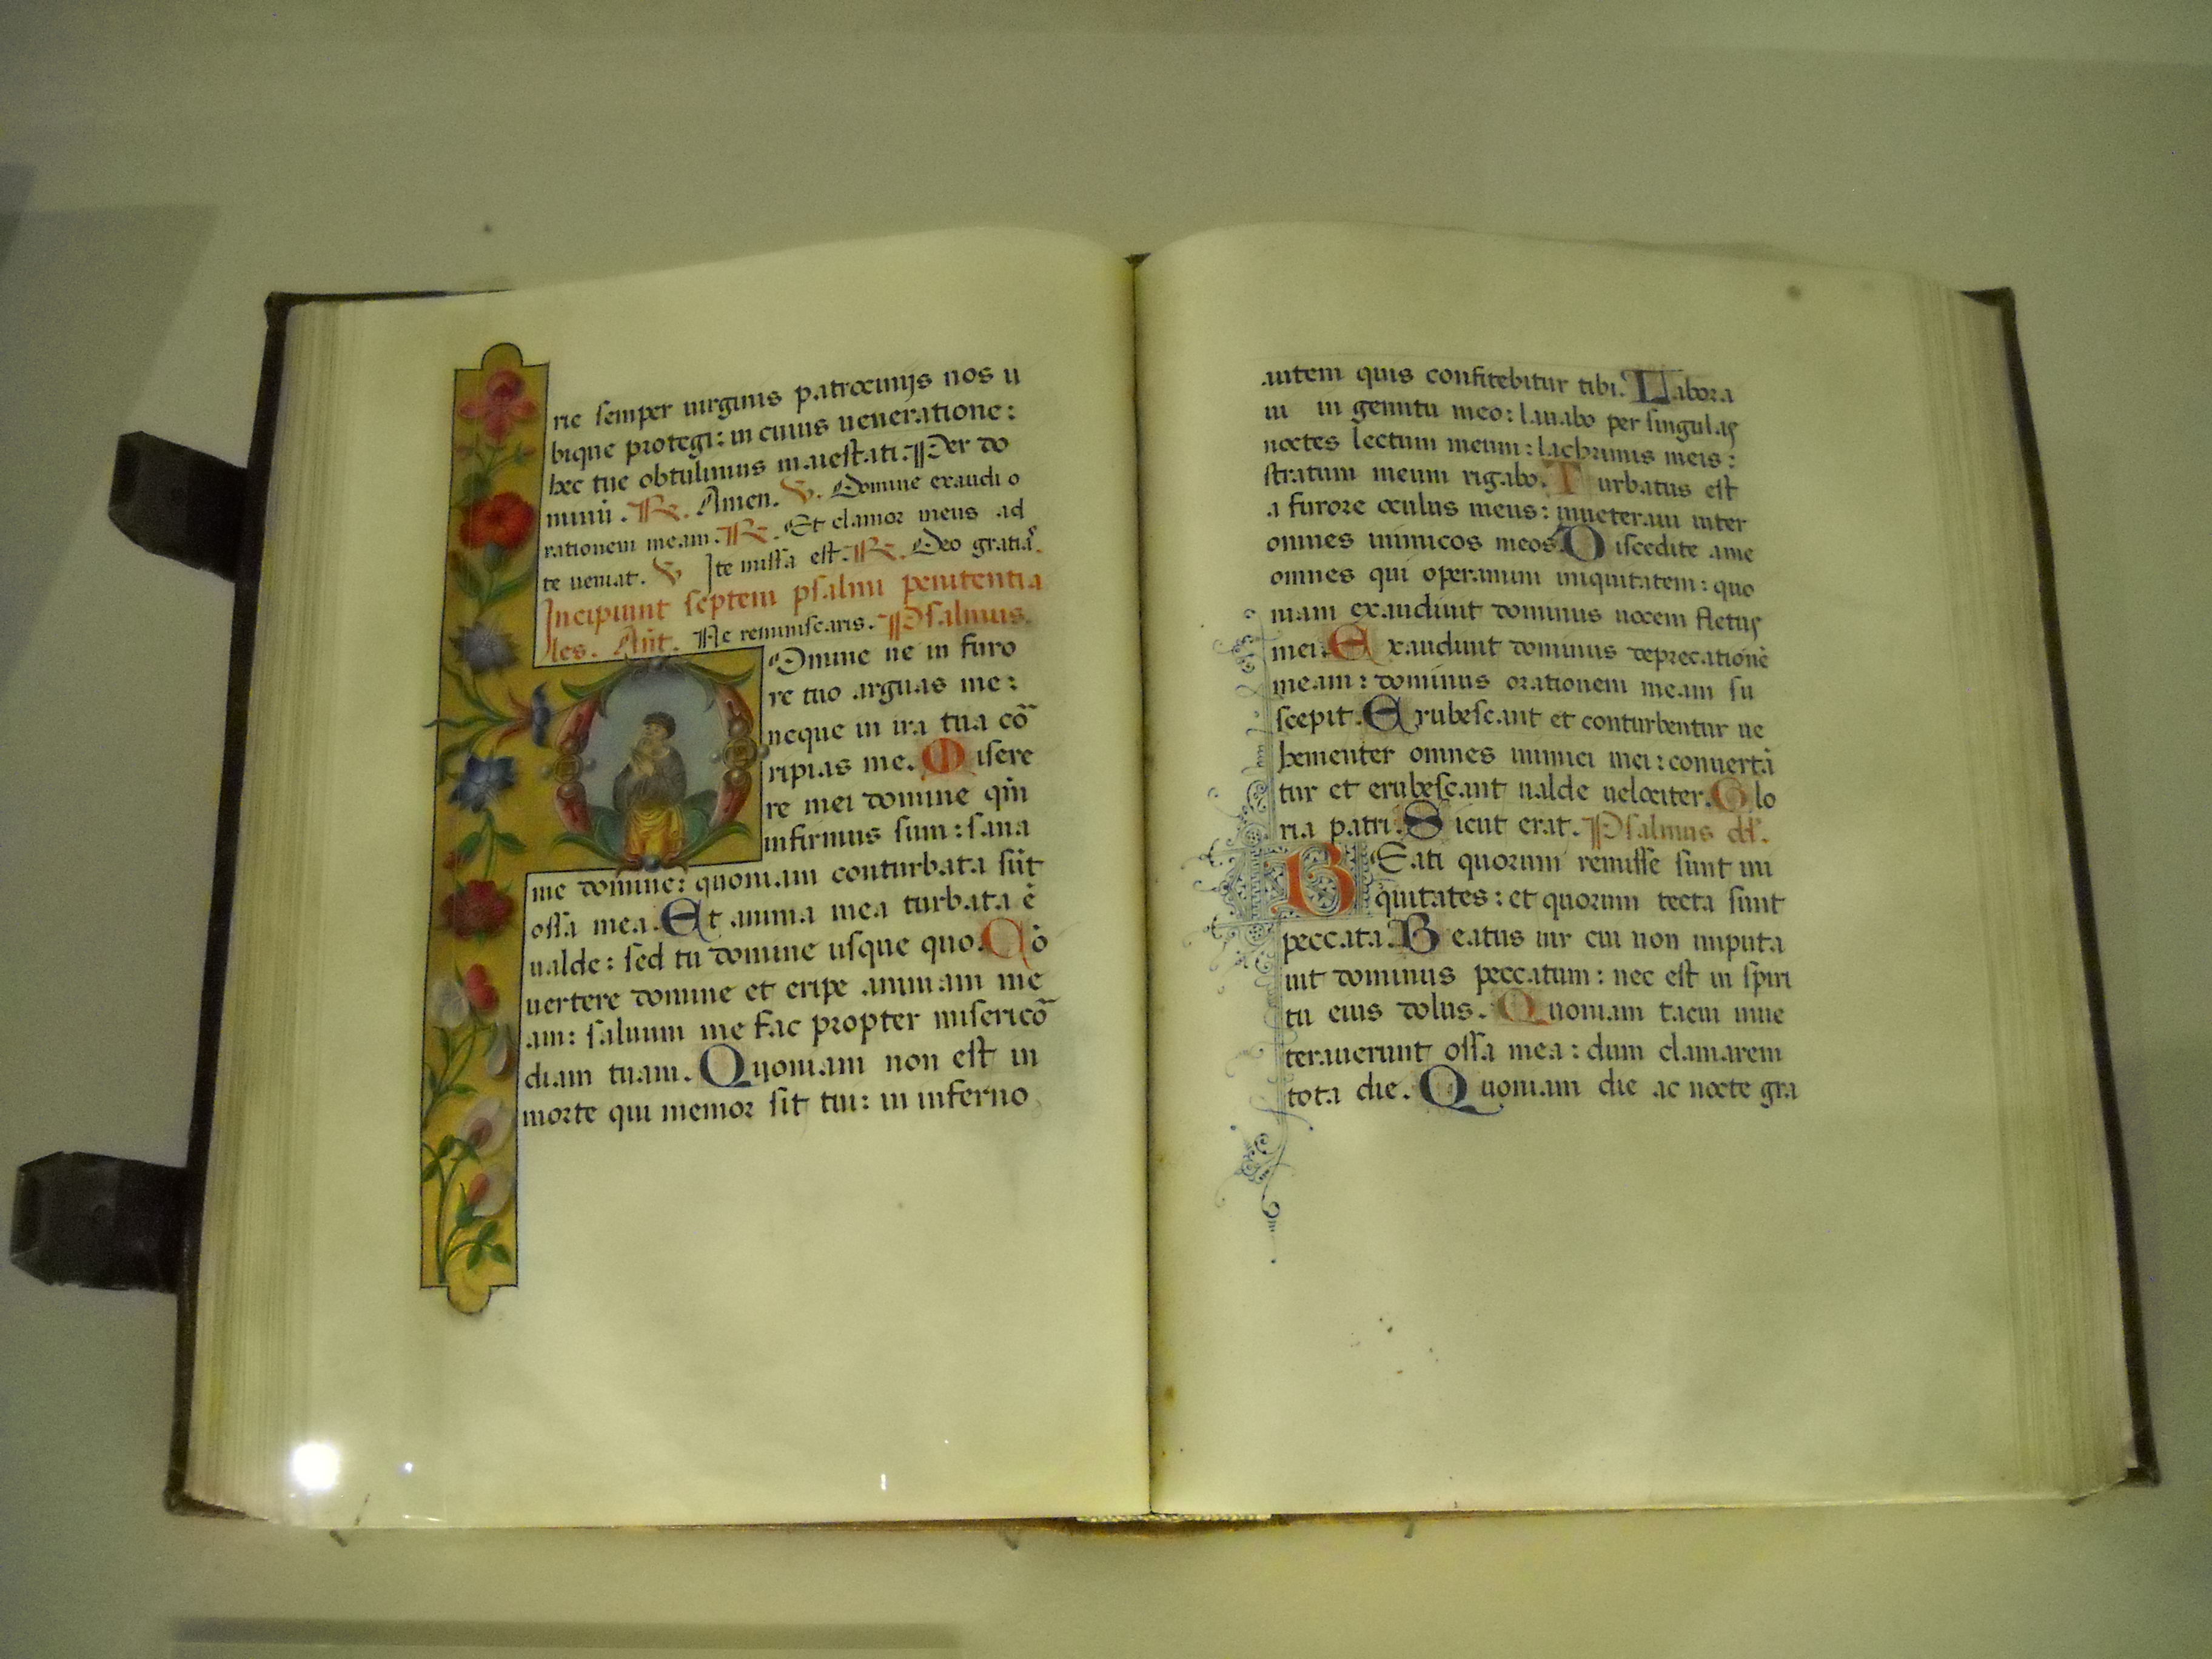 rie semper uirginis patrocinijs nos u
bique protegi: in cuius ueneratione:
hec tue obtulimus maiestati. Per do
minū. R. Amen. V. Domine exaudi o
rationem meam. R. Et clamor meus ad
te ueniat. V Ite missa est. R. Deo gratiā.
Incipiunt septem psalmi penitentia
les. Ant. Ne reminiscaris. Psalmus.
Domine ne in furo
re tuo arguas me:
neque in ira tua cō
ripias me. Misere
re mei domine qm̄
infirmus sum: sana
me domine: quoniam conturbata sūt
ossa mea. Et anima mea turbata ē
ualde: sed tu domine usque quo. Cō
uertere domine et eripe animam me
am: saluum me fac propter misericō
diam tuam. Quoniam non est in
morte qui memor sit tui: in inferno
autem quis confitebitur tibi. Labora
ui in gemitu meo: lauabo per singulas
noctes lectum meum: lachrimis meis:
stratum meum rigabo. Turbatus est
a furore oculus meus: inueteraui inter
omnes inimicos meos. Discedite ame
omnes qui operamini iniquitatem: quo
niam exaudiuit dominus uocem fletus
mei. Exaudiuit dominus deprecationē
meam: dominus orationem meam su
scepit. Erubescant et conturbentur ue
hementer omnes inimici mei: conuertā
tur et erubescant ualde uelociter. Glo
ria patri. Sicut erat. Psalmus dd.
BEati quorum remisse sunt ini
quitates: et quorum tecta sunt
peccata. Beatus uir cui non imputa
uit dominus peccatum: nec est in spiri
tu eius dolus. Quoniam tacui inue
terauerunt ossa mea: dum clamarem
tota die. Quoniam die ac nocte gra